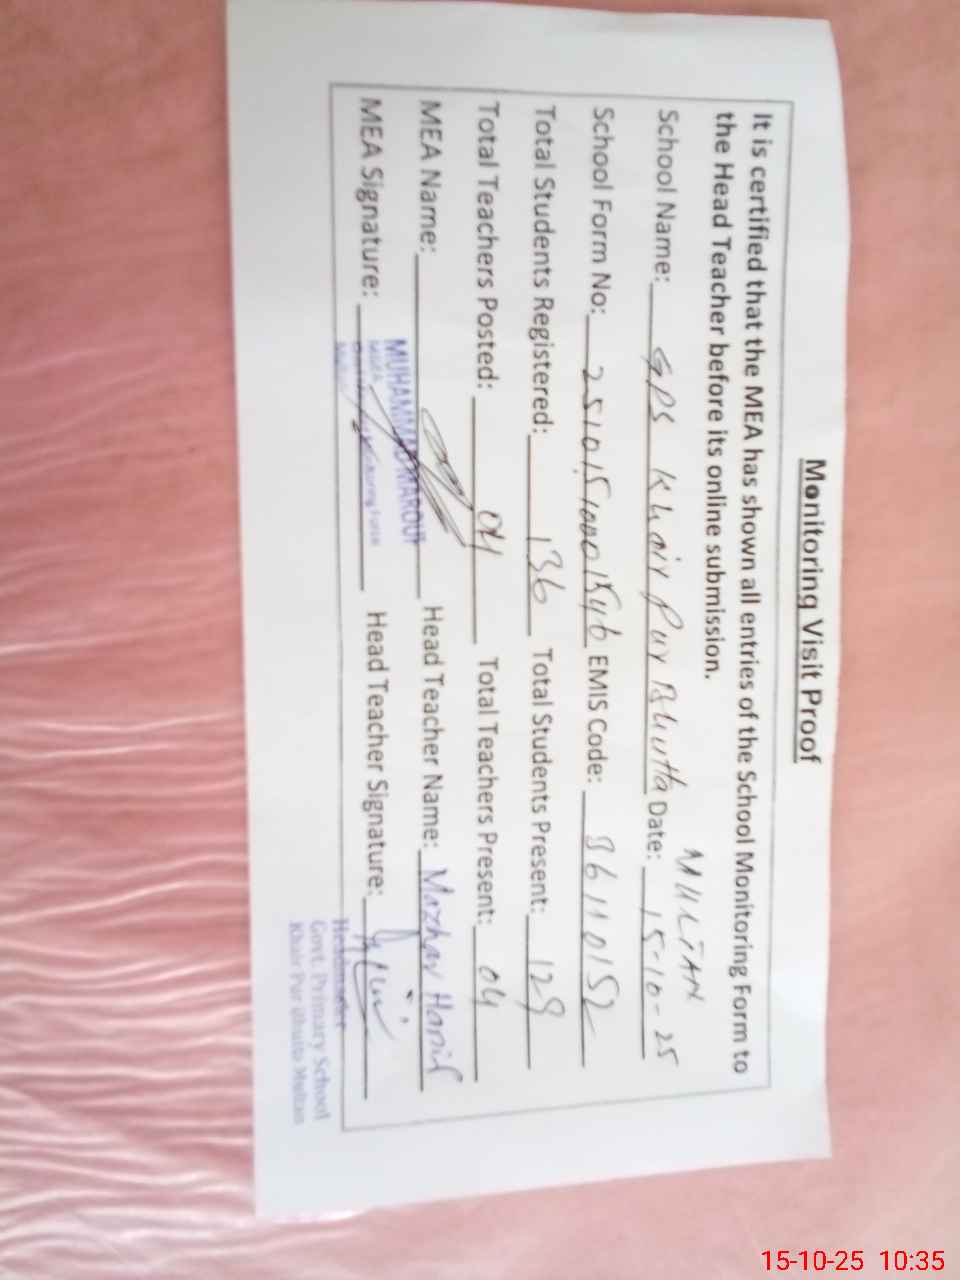 Monitoring Visit Proof
It is certified that the MEA has shown all entries of the School Monitoring Form to
the Head Teacher before its online submission.
MULTAN
School Name: GPS Khair Pur Bhutta Date: 15-10-25
School Form No: EMIS Code: 36110152
Total Students Registered: 136 Total Students Present: 129
Total Teachers Posted: 04 Total Teachers Present: 04
MEA Name: MUHAMMAD MAROUF Head Teacher Name: Mazhar Hanif
MEA Signature: Head Teacher Signature:
MEA
Monitoring Force
Headmaster
Govt. Primary School
Khair Pur Bhutta Multan
15-10-25 10:35